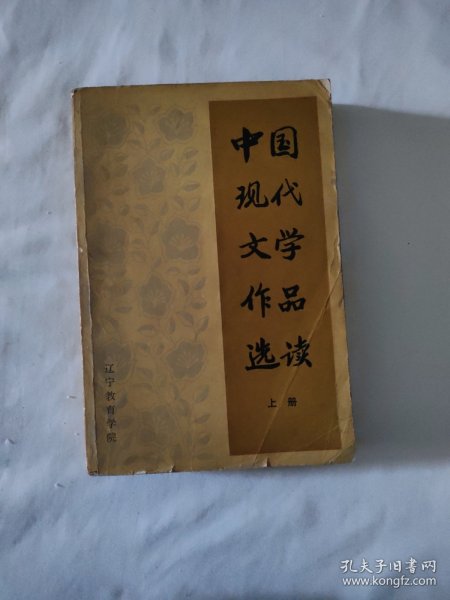 中国
现代
文学
作品
选读
上册
辽宁教育学院
孔夫子旧书网
www.kongfz.com